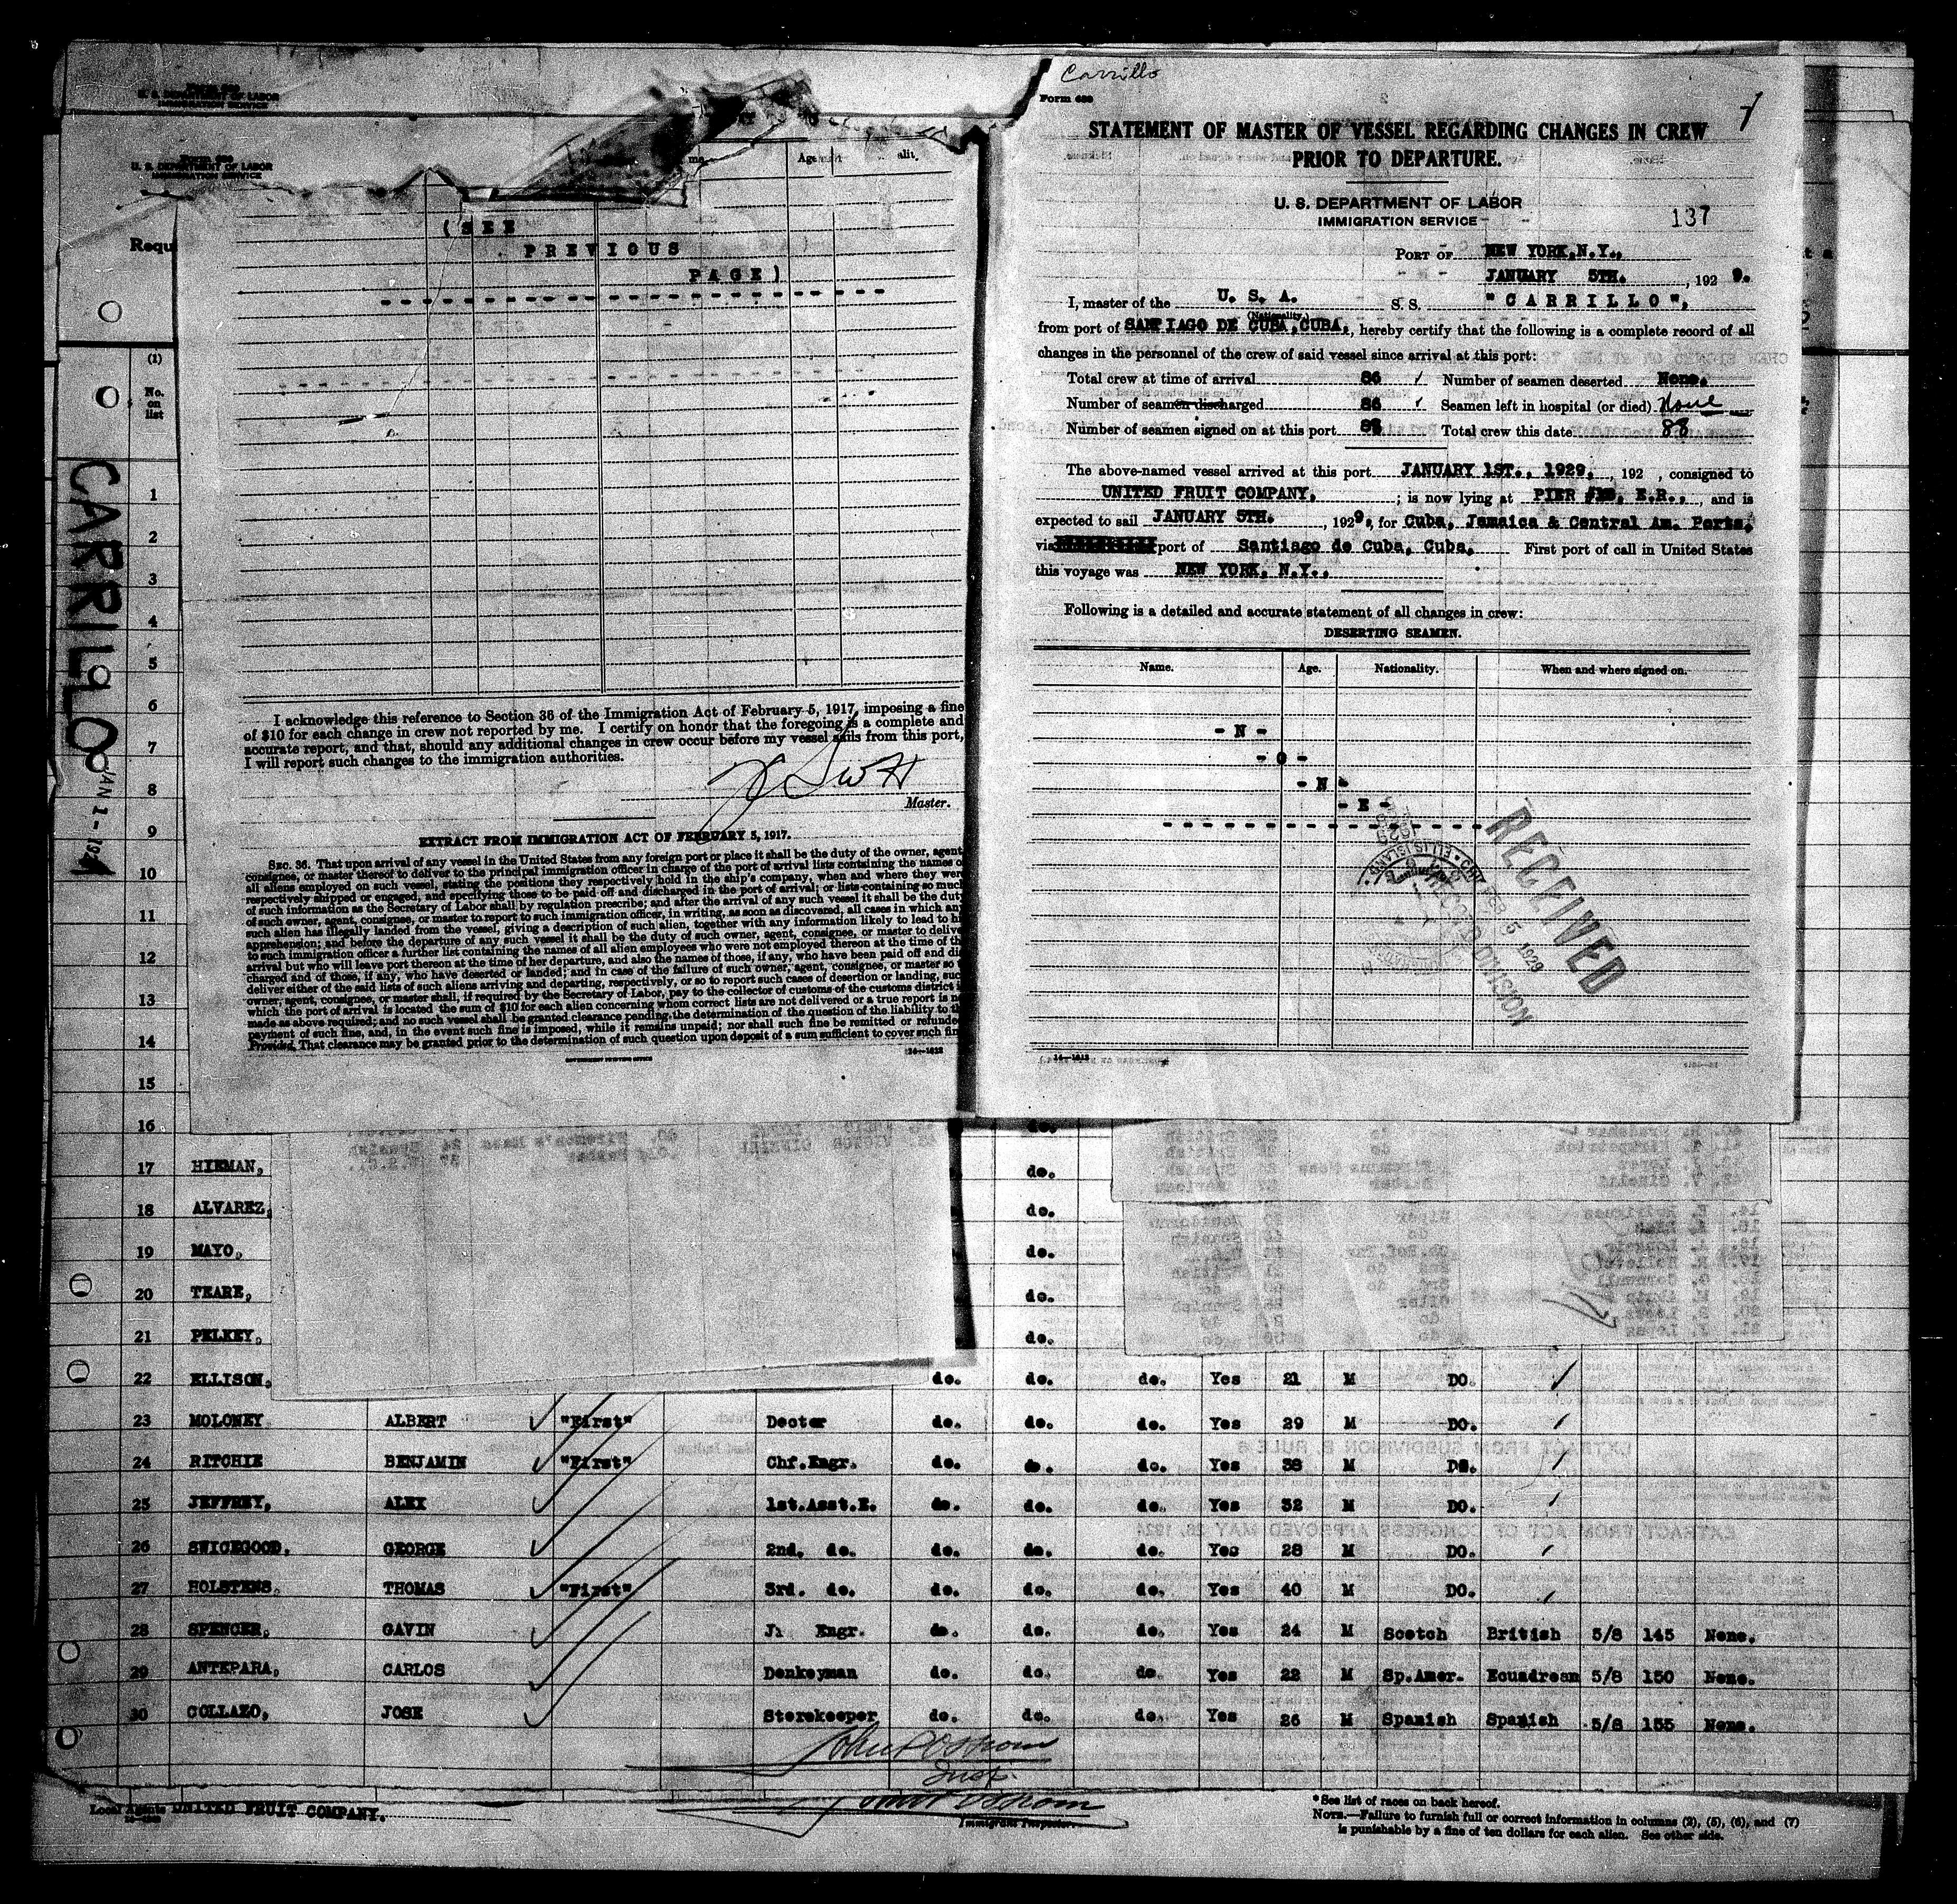 U. S. DEPARTMENT OF LABOR
IMMIGRATION SERVICE
U. S. DEPARTMENT OF LABOR
IMMIGRATION SERVICE
Requ
(1)
No.
on
list
CARRILLO
JAN 1-192
(SEE
PREVIOUS
PAGE)
I acknowledge this reference to Section 36 of the Immigration Act of February 5, 1917, imposing a fine
of $10 for each change in crew not reported by me. I certify on honor that the foregoing is a complete and
accurate report, and that, should any additional changes in crew occur before my vessel sails from this port,
I will report such changes to the immigration authorities.
Master.
EXTRACT FROM IMMIGRATION ACT OF FEBRUARY 5, 1917.
SEC. 36. That upon arrival of any vessel in the United States from any foreign port or place it shall be the duty of the owner, agent
consignee, or master thereof to deliver to the principal immigration officer in charge of the port of arrival lists containing the names o
all aliens employed on such vessel, stating the positions they respectively hold in the ship's company, when and where they were
respectively shipped or engaged, and specifying those to be paid off and discharged in the port of arrival; or lists containing so much
of such information as the Secretary of Labor shall by regulation prescribe; and after the arrival of any such vessel it shall be the duty
of such owner, agent, consignee, or master to report to such immigration officer, in writing, as soon as discovered, all cases in which any
such alien has illegally landed from the vessel, giving a description of such alien, together with any information likely to lead to hi
apprehension; and before the departure of any such vessel it shall be the duty of such owner, agent, consignee, or master to delive
to such immigration officer a further list containing the names of all alien employees who were not employed thereon at the time of th
arrival but who will leave port thereon at the time of her departure, and also the names of those, if any, who have been paid off and di
charged and of those, if any, who have deserted or landed; and in case of the failure of such owner, agent, consignee, or master so t
deliver either of the said lists of such aliens arriving and departing, respectively, or so to report such cases of desertion or landing, suc
owner, agent, consignee, or master shall, if required by the Secretary of Labor, pay to the collector of customs of the customs district i
which the port of arrival is located the sum of $10 for each alien concerning whom correct lists are not delivered or a true report is n
made as above required; and no such vessel shall be granted clearance pending the determination of the question of the liability to th
payment of such fine, and, in the event such fine is imposed, while it remains unpaid; nor shall such fine be remitted or refunde
Provided, That clearance may be granted prior to the determination of such question upon deposit of a sum sufficient to cover such fin
GOVERNMENT PRINTING OFFICE
Carrillo
Form 689
7
STATEMENT OF MASTER OF VESSEL REGARDING CHANGES IN CREW
PRIOR TO DEPARTURE.
U. S. DEPARTMENT OF LABOR
IMMIGRATION SERVICE
137
PORT OF NEW YORK, N.Y.,
JANUARY 5TH. , 192 9.
I, master of the U. S. A. S. S. "CARRILLO",
(Nationality)
from port of SANTIAGO DE CUBA, CUBA, hereby certify that the following is a complete record of all
changes in the personnel of the crew of said vessel since arrival at this port:
Total crew at time of arrival 86 Number of seamen deserted None.
Number of seamen discharged 86 Seamen left in hospital (or died) None
Number of seamen signed on at this port 88 Total crew this date 88
The above-named vessel arrived at this port JANUARY 1ST., 1929, , 192 , consigned to
UNITED FRUIT COMPANY, ; is now lying at PIER E.R., and is
expected to sail JANUARY 5TH. , 1929, for Cuba, Jamaica & Central Am. Ports,
via port of Santiago de Cuba, Cuba. First port of call in United States
this voyage was NEW YORK, N.Y.,
Following is a detailed and accurate statement of all changes in crew:
DESERTING SEAMEN.
Name. Age. Nationality. When and where signed on.
- N -
- O -
- N -
- E -
RECEIVED
FEB 5 1929
RECORD DIVISION
ELLIS ISLAND
1
2
3
4
5
6
7
8
9
10
11
12
13
14
15
16 do.
17 HIEMAN, do.
18 ALVAREZ, do.
19 MAYO, do.
20 TEARE, do.
21 PELKEY, do.
22 ELLISON, do. do. do. Yes 21 M DO.
23 MOLONEY ALBERT "First" Doctor do. do. do. Yes 29 M DO.
24 RITCHIE BENJAMIN "First" Chf.Engr. do. do. do. Yes 38 M DO.
25 JEFFREY, ALEX 1st.Asst.E. do. do. do. Yes 32 M DO.
26 SWICEGOOD, GEORGE 2nd. do. do. do. do. Yes 28 M DO.
27 HOLSTENS, THOMAS "First" 3rd. do. do. do. do. Yes 40 M DO.
28 SPENCER, GAVIN Jr Engr. do. do. do. Yes 24 M Scotch British 5/8 145 None.
29 ANTEPARA, CARLOS Donkeyman do. do. do. Yes 22 M Sp.Amer. Ecuadrean 5/8 150 None.
30 COLLAZO, JOSE Storekeeper do. do. do. Yes 26 M Spanish Spanish 5/8 155 None.
John P Ostrom
Insp.
Local Agents UNITED FRUIT COMPANY.
Immigrant Inspector.
*See list of races on back hereof.
NOTE.—Failure to furnish full or correct information in columns (2), (5), (6), and (7)
is punishable by a fine of ten dollars for each alien. See other side.